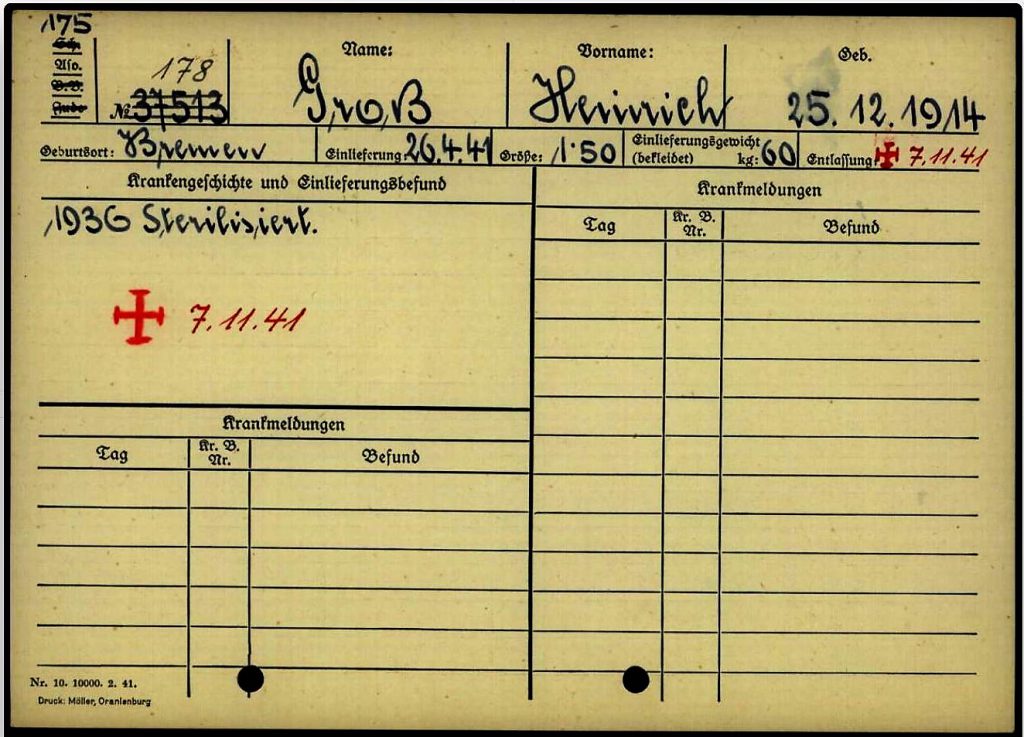 175
Sch.
Aso.
B.B.
Jude
178
№ 37513
Name:
Groß
Vorname:
Heinrich
Geb.
25. 12. 1914
Geburtsort: Bremen Einlieferung: 26.4.41 Größe: 1·50 Einlieferungsgewicht (bekleidet) kg: 60 Entlassung 7.11.41
Krankengeschichte und Einlieferungsbefund
1936 Sterilisiert.
7.11.41
Krankmeldungen
Tag Kr. B. Nr. Befund
Nr. 10. 10000. 2. 41.
Druck: Möller, Oranienburg
Krankmeldungen
Tag Kr. B. Nr. Befund